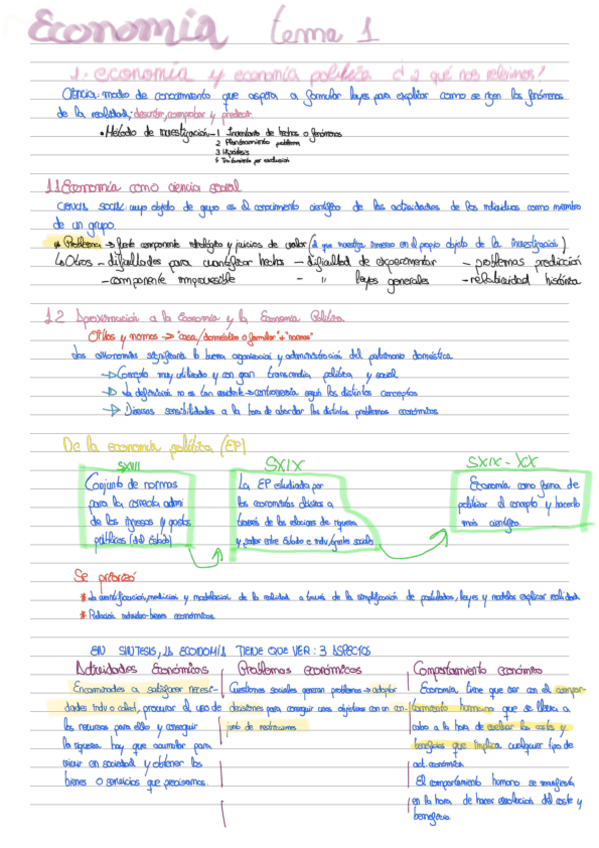 Economía tema 1
1. economía y economía política ¿a qué nos referimos?
Ciencia: modo de conocimiento que aspira a formular leyes para explicar como se rigen los fenómenos
de la realidad, describir, comprobar y predecir
• Método de investigación - 1 Inventario de hechos o fenómenos
2 Planteamiento problema
3 Hipótesis
1.1 Economía como ciencia social
ciencia social: cuyo objeto de grupo es el conocimiento científico de las actividades de los individuos como miembro
de un grupo.
* Problema → fuerte componente ideológico y juicios de valor (el que investiga inmerso en el propio objeto de la investigación)
↳ Otros - dificultades para cuantificar hechos - dificultad de experimentar - problemas predicción
- componente imprevisible - " leyes generales - relatividad histórica
1.2 Aproximación a la Economía y la Economía Política
Oikos y nomos → "casa/doméstico o familiar" + "normas"
dos significaría la buena organización y administración del patrimonio doméstico
→ Concepto muy utilizado y con gran política y social
→ la definición no es tan → controversia según los distintos conceptos
→ Diversas sensibilidades a la hora de abordar los distintos problemas económicos
De la economía política (EP)
SXIX SXIX - XX
Conjunto de normas La EP estudiada por Economía como forma de
para la correcta admi los economistas clásicos a el concepto y hacerlo
de los ingresos y gastos través de las de riqueza más científico
públicos (del Estado) y poder entre Estado e indv/grantes sociales
Se priorizó
* la cuantificación, medición y modelación de la realidad a través de la simplificación de postulados, leyes y modelos explicar realidad
* Relación individuo-bienes económicos
EN SINTESIS, LA ECONOMÍA TIENE QUE VER: 3 ASPECTOS
Actividades Económicas Problemas económicos Comportamiento económico
Encaminadas a satisfacer necesi- Cuestiones sociales generan problemas → adoptar Economía tiene que ver con el compor-
dades indv o colect, procurar el uso de decisiones para conseguir unos objetivos con un con- tamiento humano que se lleva a
los recursos para ello y conseguir junto de restricciones cabo a la hora de evaluar los costes y
la riqueza hay que acumular para beneficios que implica cualquier tipo de
vivir en sociedad y obtener los act. económica
bienes o servicios que precisamos. El comportamiento humano se manifiesta
en la hora de hacer del coste y
beneficio.